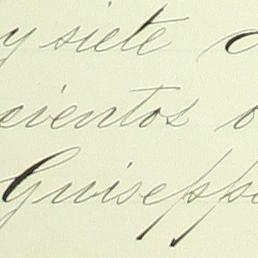 y siete
cientos
Guiseppe